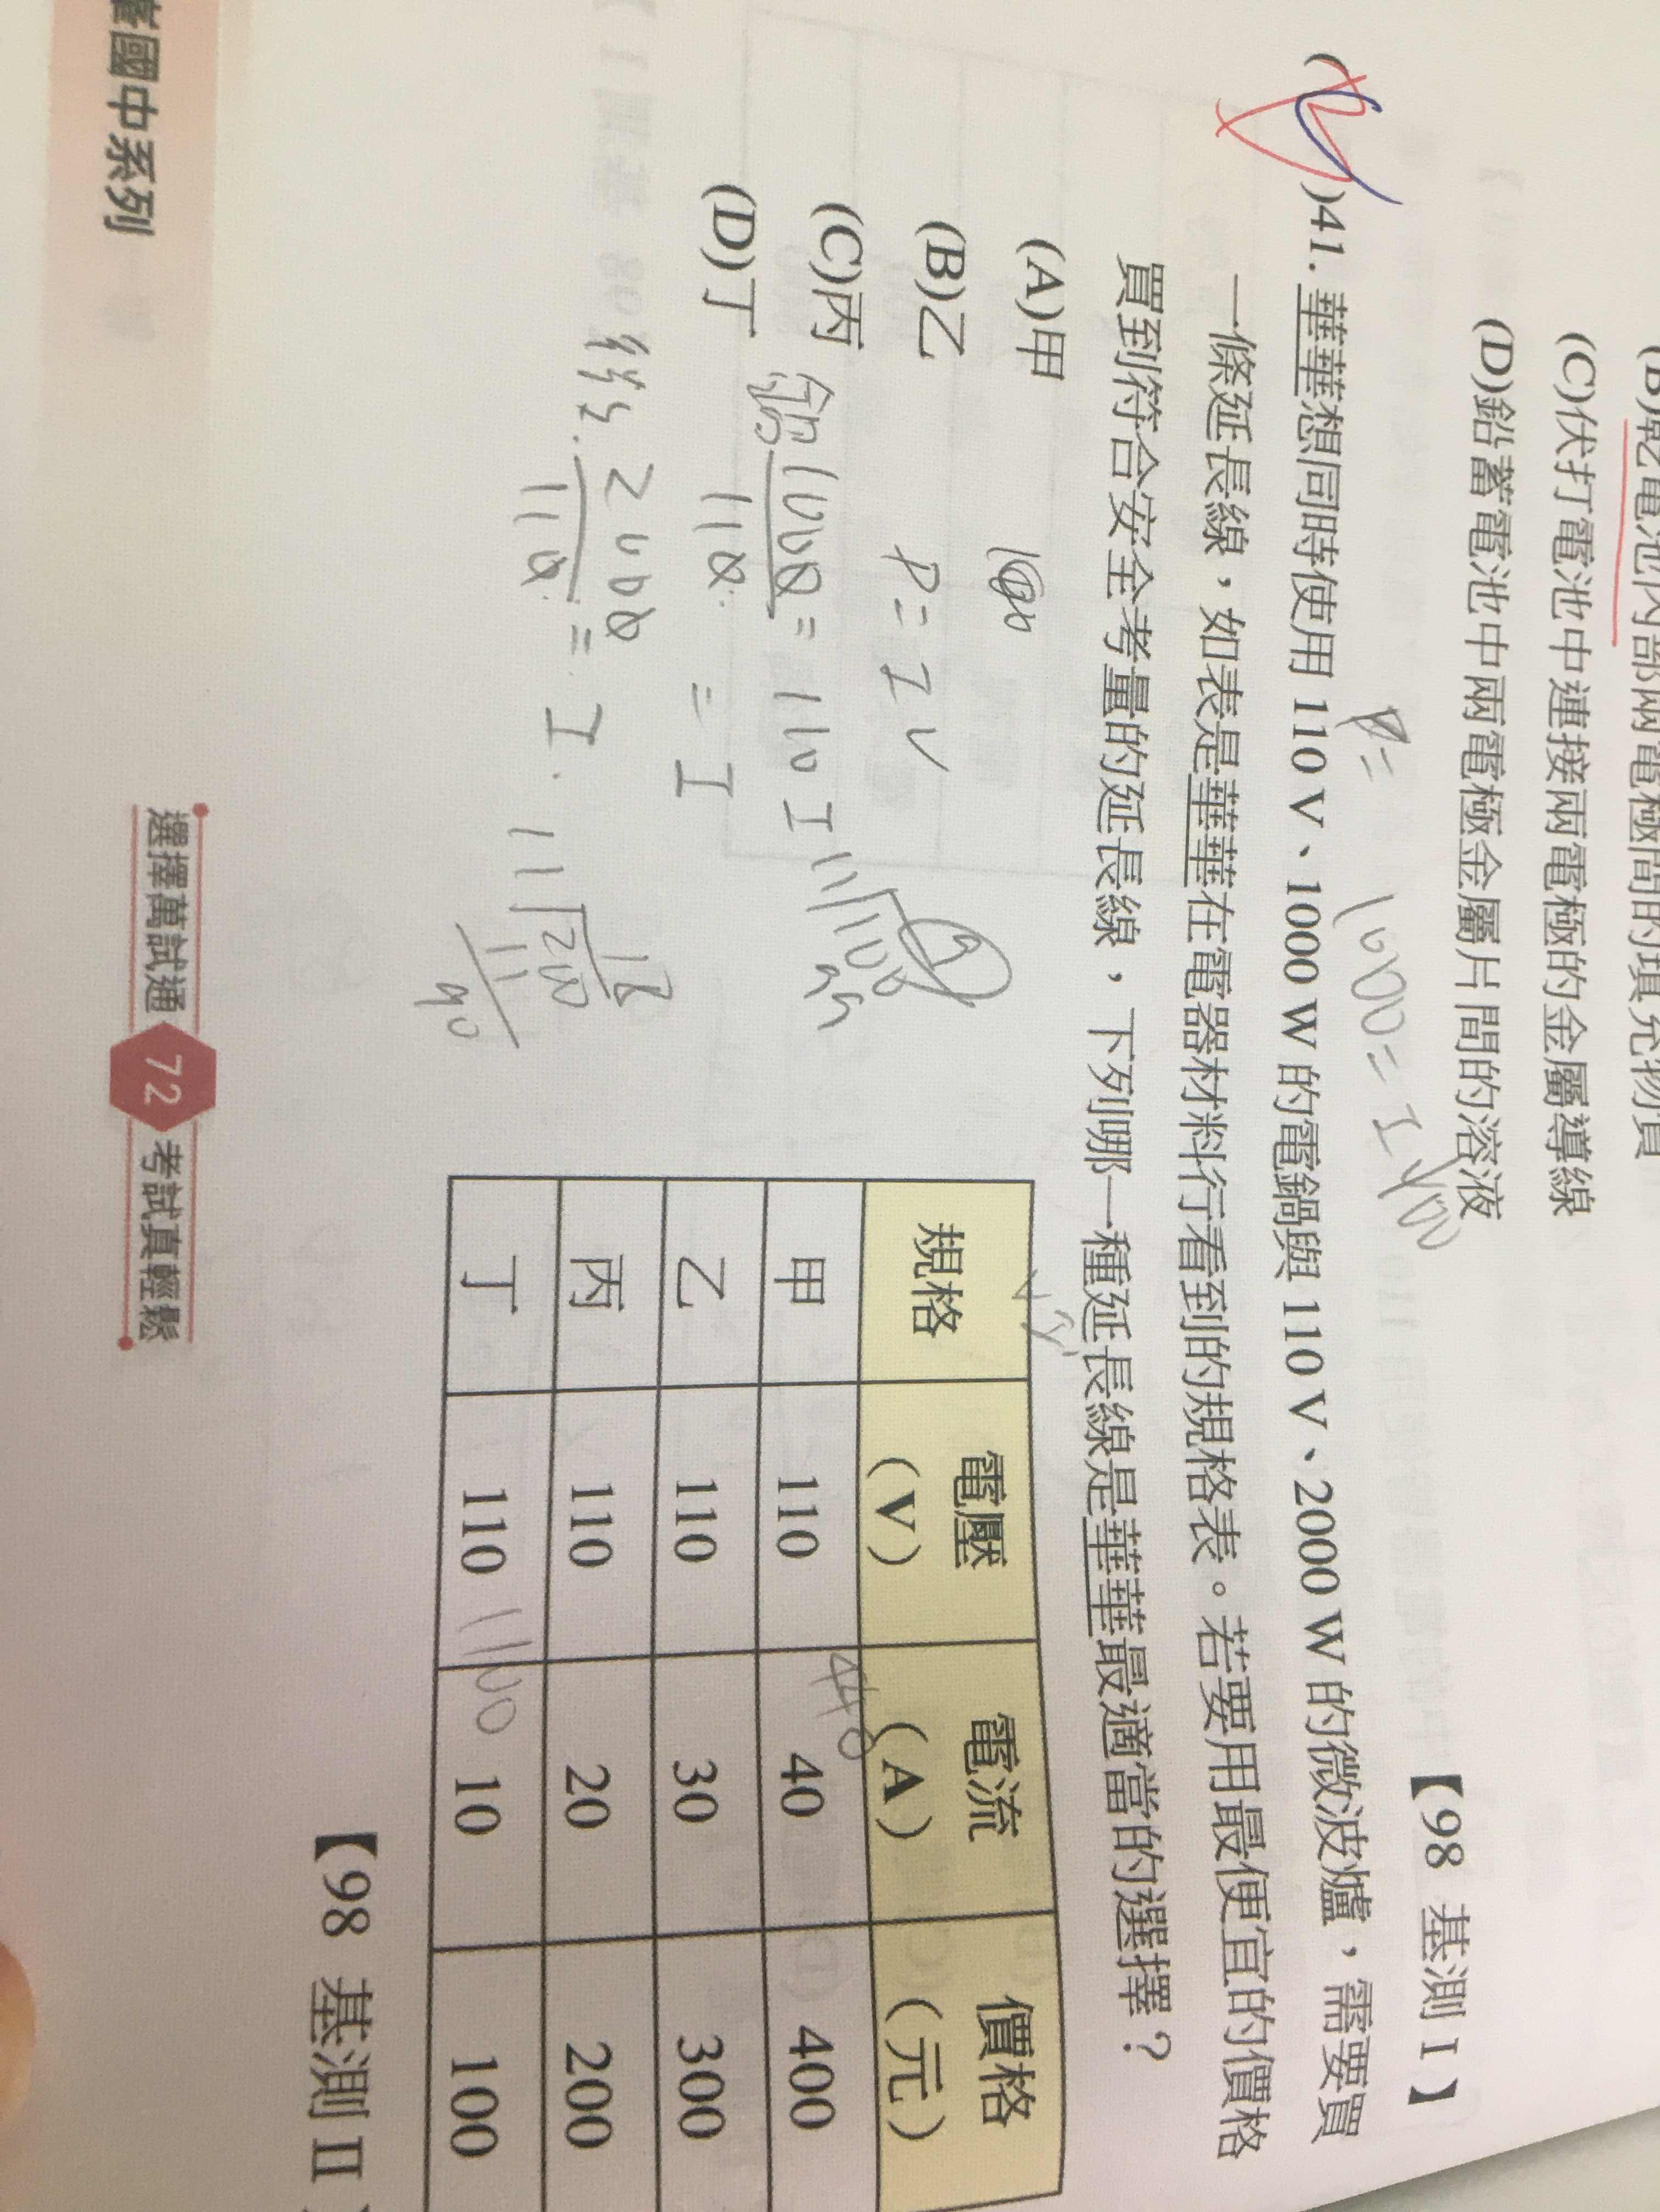 (B)乾電池內部兩電極間的填充物質
(C)伏打電池中連接兩電極的金屬導線
(D)鉛蓄電池中兩電極金屬片間的溶液
【98 基測 I】
P=
1000=I
( )41. 華華想同時使用 110 V、1000 W 的電鍋與 110 V、2000 W 的微波爐，需要買
一條延長線，如表是華華在電器材料行看到的規格表。若要用最便宜的價格
買到符合安全考量的延長線，下列哪一種延長線是華華最適當的選擇？
(A)甲
(B)乙 P=IV
(C)丙 鍋 1000 = 110 I
110 = I
(D)丁
微 2000 = I
110
規格 電壓(V) 電流(A) 價格(元)
甲 110 40 400
乙 110 30 300
丙 110 20 200
丁 110 10 100
1100
【98 基測 II
國中系列
選擇萬試通 72 考試真輕鬆